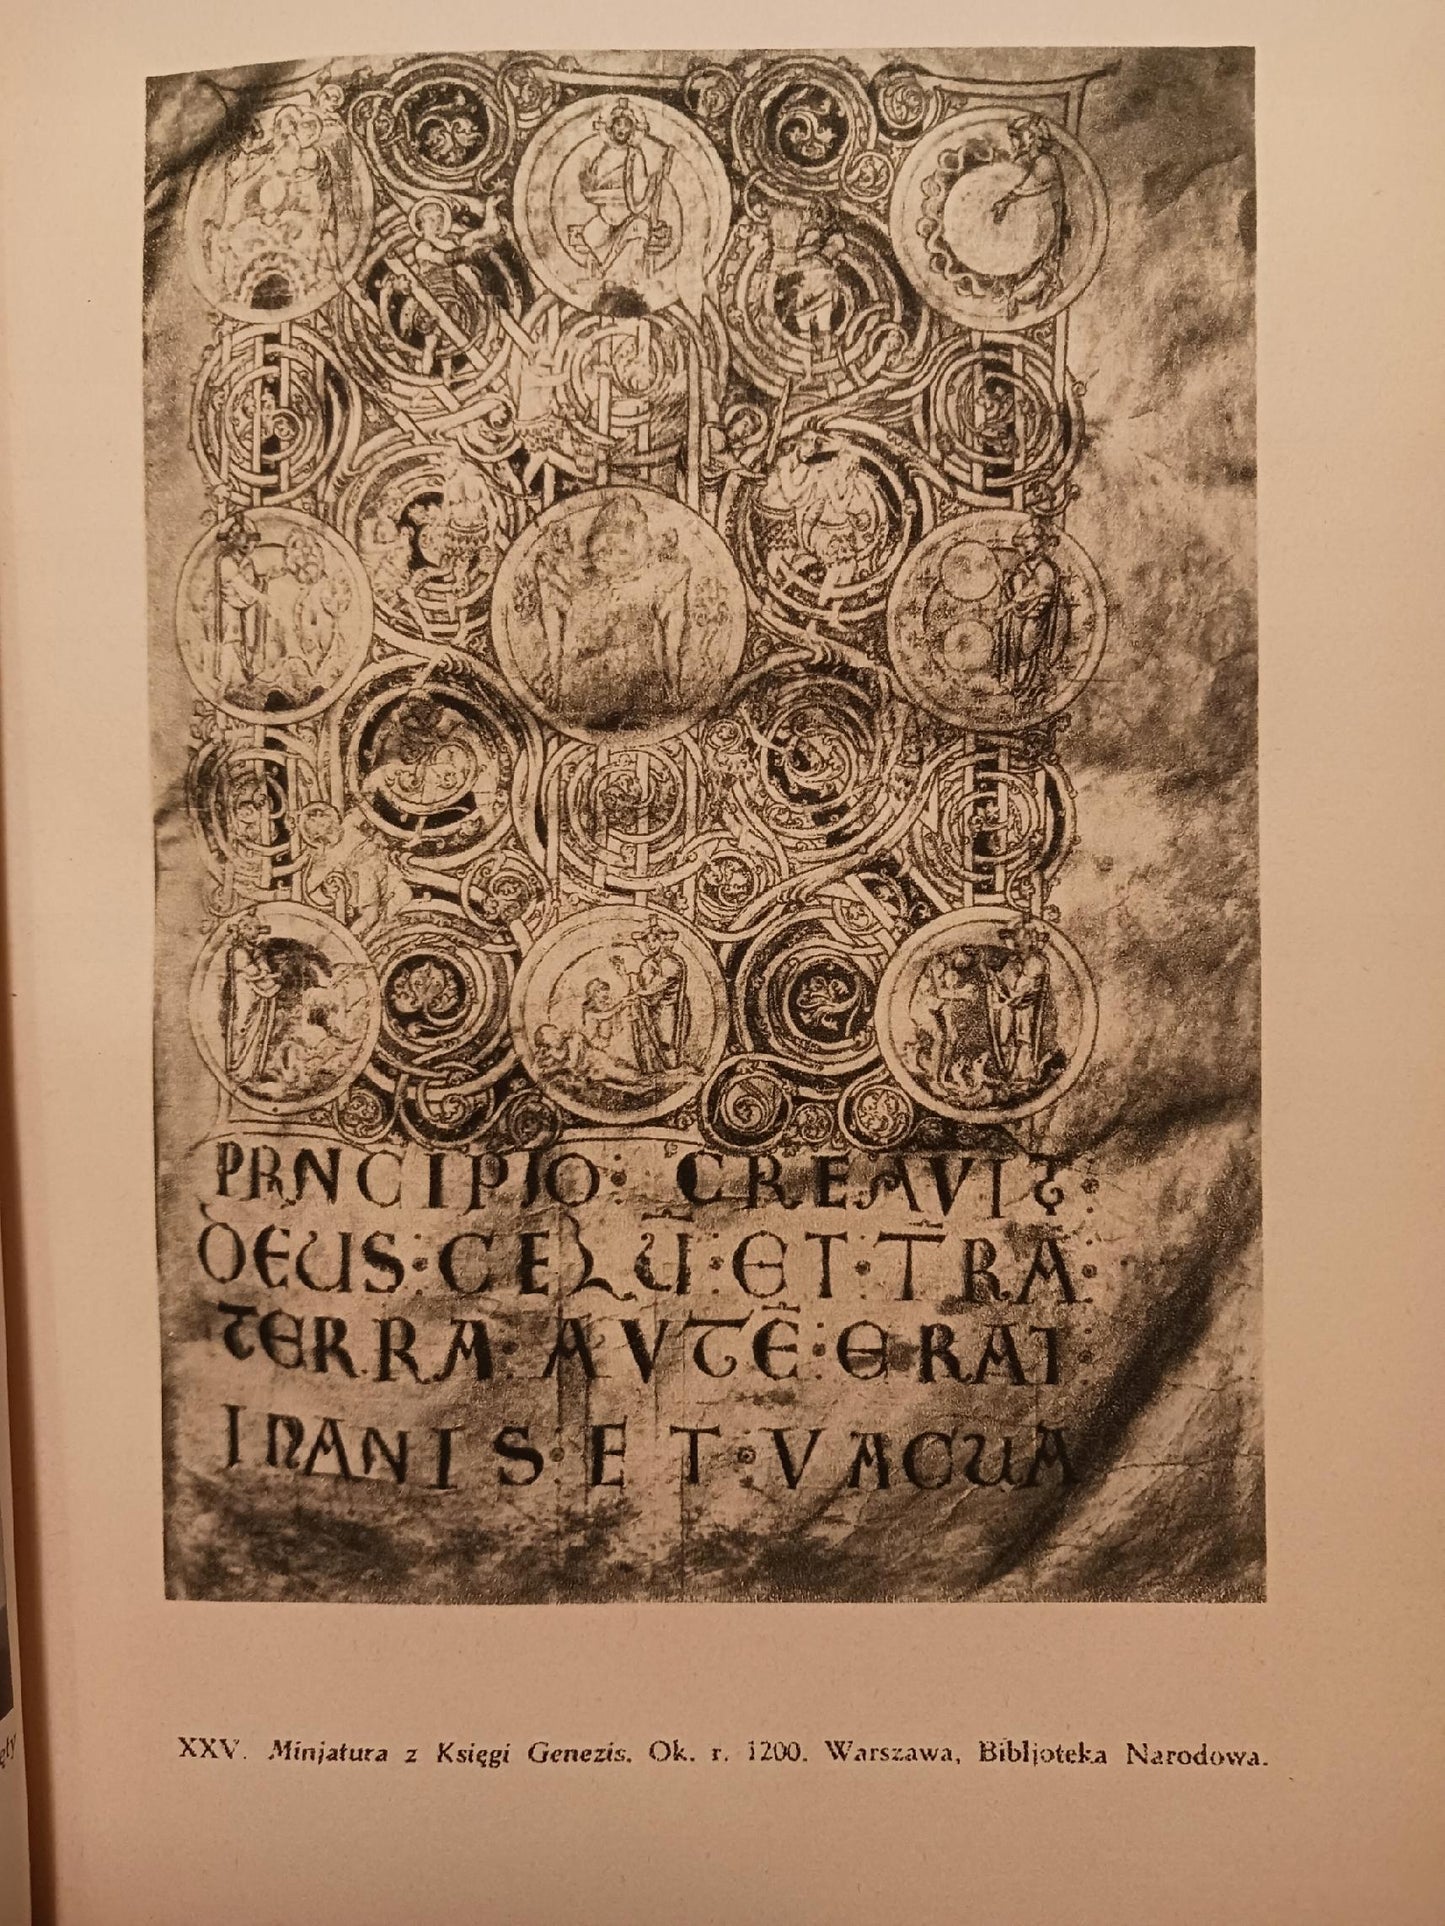 PRNCIPIO: CREAVIT:
DEUS: CELŪ: ET: TRĀ:
TERRA: AVTĒ: ERAT:
INANIS: ET: VACUA
XXV. Minjatura z Księgi Genezis. Ok. r. 1200. Warszawa, Bibljoteka Narodowa.